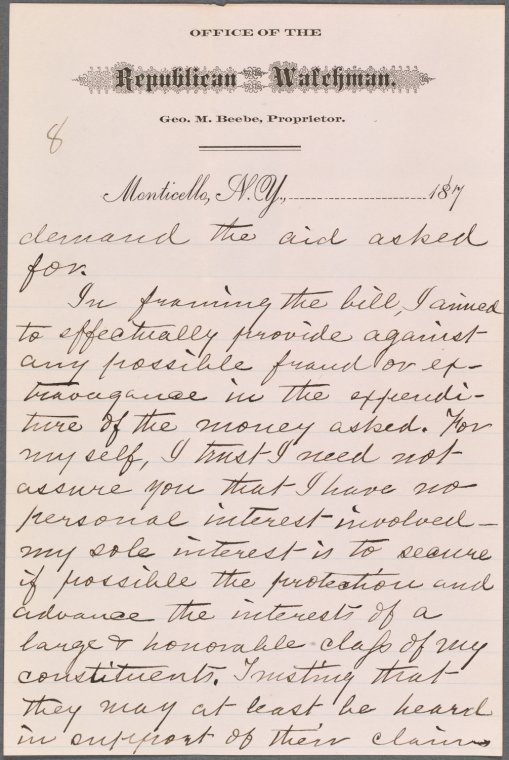 OFFICE OF THE
Republican Watchman.
Geo. M. Beebe, Proprietor.
8
Monticello, N. Y., 187
demand the aid asked
for.
In framing the bill, I aimed
to effectually provide against
any possible fraud or ex-
travagance in the expendi-
ture of the money asked. For
myself, I trust I need not
assure you that I have no
personal interest involved –
my sole interest is to secure
if possible the protection and
advance the interests of a
large & honorable class of my
constituents. Trusting that
they may at least be heard
in support of their claim